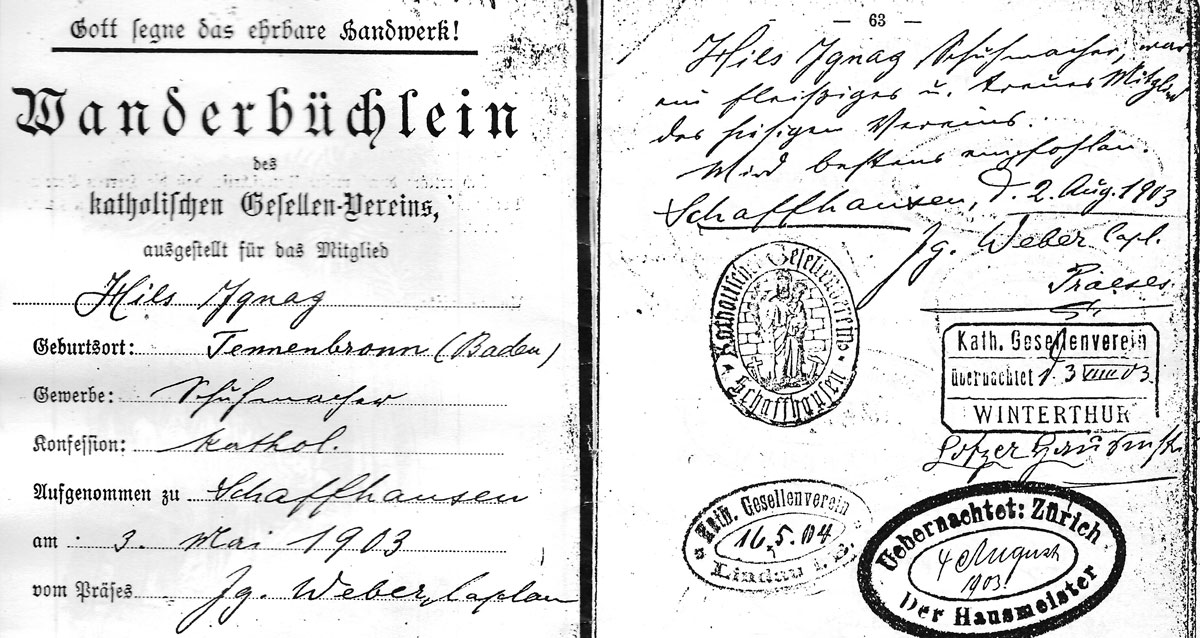 Gott segne das ehrbare Handwerk!
Wanderbüchlein
des
katholischen Gesellen-Vereins,
ausgestellt für das Mitglied
Hils Ignaz
Geburtsort: Tennenbronn (Baden)
Gewerbe: Schuhmacher
Konfession: kathol.
Aufgenommen zu Schaffhausen
am 3. Mai 1903
vom Präses Jg. Weber, Caplan
— 63 —
Hils Ignaz Schuhmacher, war
ein fleißiges u. treues Mitglied
des hiesigen Vereins.
Wird bestens empfohlen.
Schaffhausen, d. 2. Aug. 1903
Jg. Weber Capl.
Praeses
Katholischer Gesellenverein
Schaffhausen
Kath. Gesellenverein
übernachtet 3 VIII 03
WINTERTHUR
Kath. Gesellenverein
16.5.04
Lindau i. B.
Uebernachtet: Zürich
4 August
1903
Der Hausmeister